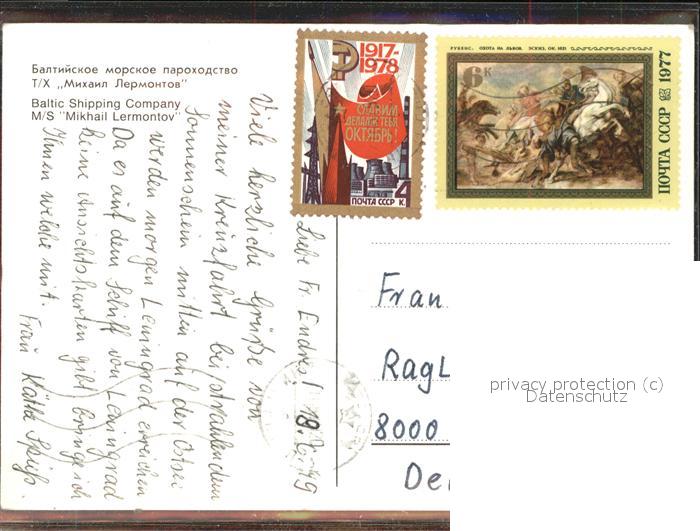 Балтийское морское пароходство
Т/Х „Михаил Лермонтов"
Baltic Shipping Company
M/S "Mikhail Lermontov"
1917-
1978
СЛАВИМ
ДЕЛАМИ ТЕБЯ
ОКТЯБРЬ!
ПОЧТА СССР К.
4
РУБЕНС. ОХОТА НА ЛЬВОВ. ЭСКИЗ, ОК. 1621
6 К
ПОЧТА СССР 1977
Liebe Fr. Endres! 18.
Viele herzliche Grüße von
meiner Kreuzfahrt bei strahlendem
Sonnenschein mitten auf der Ostsee
werden morgen Leningrad erreichen
Da es auf dem Schiff von Leningrad
keine Ansichtskarten gibt bringe ich
Ihnen welche mit.
Frau Käthe
Frau
Ragl
8000
De
privacy protection (c)
Datenschutz